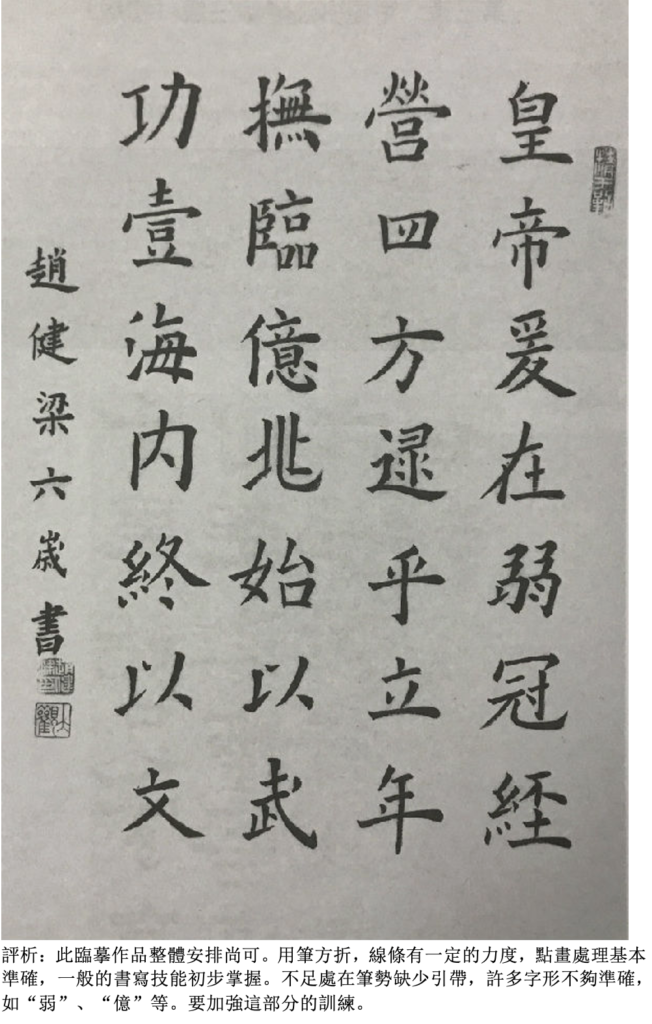 皇帝爰在弱冠經
營四方逮乎立年
撫臨億兆始以武
功壹海内終以文
趙健梁六歲書
評析：此臨摹作品整體安排尚可。用筆方折，線條有一定的力度，點畫處理基本
準確，一般的書寫技能初步掌握。不足處在筆勢缺少引帶，許多字形不夠準確，
如“弱”、“億”等。要加強這部分的訓練。